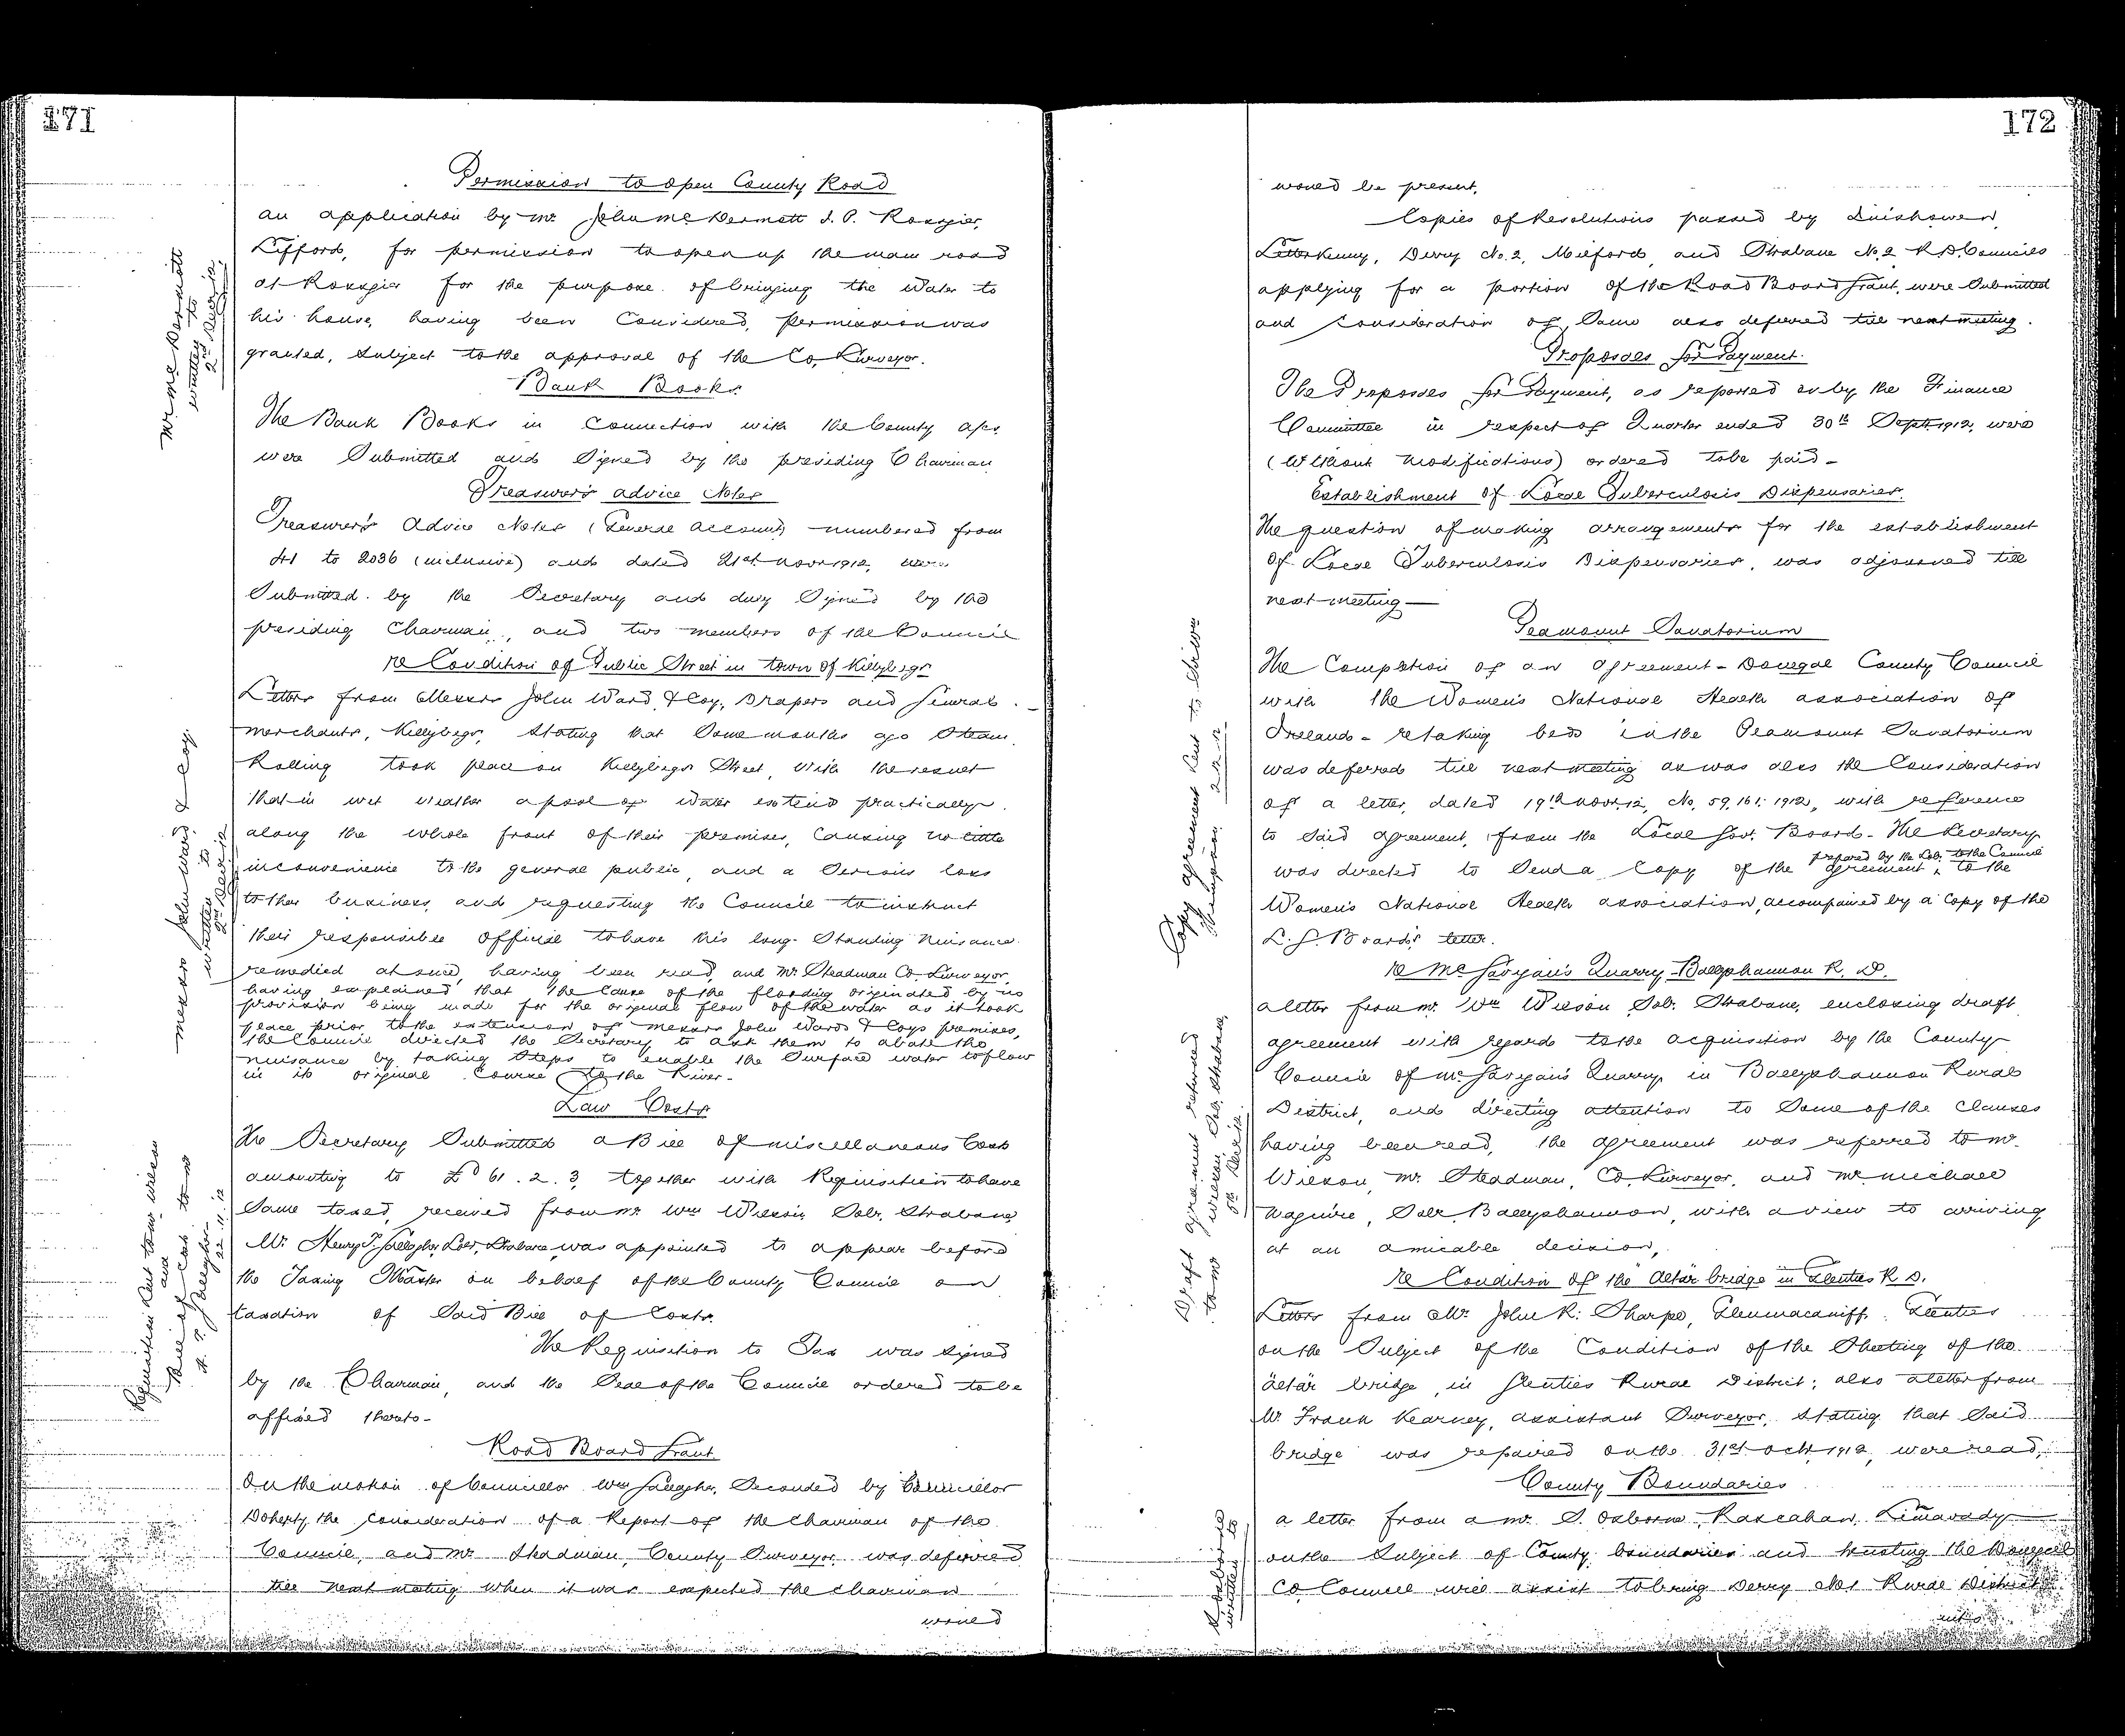 171
Permission to open County Road
An application by Mr John McDermott J. P. Rossgier,
Lifford, for permission to open up the main road
at Rossgier for the purpose of bringing the Water to
his house, having been Considered, permission was
granted, Subject to the approval of the Co. Surveyor.
Mr McDermott
written to
2nd Decr 12
Bank Books
The Bank Books in Connection with the County a/cs.
were Submitted and Signed by the presiding Chairman
Treasurer's Advice Notes
Treasurer's Advice Notes (General Account) numbered from
41 to 2036 (inclusive) and dated 21st Novr 1912, were
Submitted by the Secretary and duly Signed by the
presiding Chairman, and two members of the Council
Re Condition of Public Street in town of Killybegs
Letter from Messrs John Ward & Coy, Drapers and General
Merchants, Killybegs, Stating that Some months ago Steam
Rolling took place on Killybegs Street, with the result
that in wet weather a pool of water extends practically
along the whole front of their premises, Causing no little
inconvenience to the general public, and a Serious loss
to their business, and requesting the Council to instruct
their responsible Official to have his long-Standing Nuisance
remedied at once, having been read, and Mr Steadman Co. Surveyor,
having explained that the Cause of the flooding originated by no
provision being made for the original flow of the water as it took
place prior to the extension of Messrs John Ward & Coys premises,
the Council directed the Secretary to ask them to abate the
nuisance by taking Steps to enable the Surface water to flow
in its original Course to the River-
Messrs John Ward & Coy.
written to
2nd Decr 12
Law Costs
The Secretary Submitted a Bill of miscellaneous Costs
amounting to £61.2.3, together with Requisition to have
Same taxed, received from Mr Wm Wilson, Solr, Strabane,
Mr Henry T. Gallagher, Solr, Strabane, was appointed to appear before
the Taxing Master on behalf of the County Council on
taxation of Said Bill of Costs.
The Requisition to Tax was Signed
by the Chairman, and the Seal of the Council ordered to be
affixed thereto-
Requisition sent to Mr Wilson
and
Bill of Costs to Mr
H. T. Gallagher
22.11.12
Road Board Grant
On the motion of Councillor Wm Gallagher, Seconded by Councillor
Doherty, the Consideration of a Report of the Chairman of the
Council, and Mr Steadman, County Surveyor was deferred
till next meeting when it was expected the Chairman
would
172
would be present.
Copies of Resolutions passed by Inishowen,
Letterkenny, Derry No. 2, Milford, and Strabane No. 2 R. D. Councils
applying for a portion of the Road Board Grant, were Submitted
and Consideration of Same also deferred till next meeting.
Proposals for Payment.
The Proposals for Payment, as reported on by the Finance
Committee in respect of Quarter ended 30th Sept. 1912, were
(Without Modifications) ordered to be paid-
Establishment of Local Tuberculosis Dispensaries.
The question of making arrangements for the establishment
of Local Tuberculosis Dispensaries, was adjourned till
next meeting-
Peamount Sanatorium
The Completion of an Agreement - Donegal County Council
with the Women's National Health Association of
Ireland - re taking beds in the Peamount Sanatorium
was deferred till next meeting as was also the Consideration
of a letter, dated 19th Novr. 12, No. 59,161: 1912, with reference
to Said Agreement, from the Local Gov. Board. The Secretary
prepared by the Solr. to the Council
was directed to Send a Copy of the agreement ^ to the
Women's National Health Association, accompanied by a Copy of the
L. G. Board's letter.
Copy agreement sent to
2.12.12
Re McGargan's Quarry - Ballyshannon R. D.
A letter from Mr. Wm Wilson Solr. Strabane, enclosing draft
agreement with regards to the acquisition by the County
Council of McGargan's Quarry, in Ballyshannon Rural
District, and directing attention to Some of the Clauses
having been read, the agreement was referred to Mr
Wilson, Mr. Steadman, Co. Surveyor, and Mr Michael
Maguire, Solr. Ballyshannon, with a view to arriving
at an amicable decision,
Draft agreement returned
to Mr Wilson, Solr, Strabane,
5th Decr 12.
Re Condition of the "Altar" bridge in Glenties R. D.
Letter from Mr John R. Tharpe, Glenmacaniff, Glenties
on the Subject of the Condition of the Sheeting of the
"altar" bridge, in Glenties Rural District; also a letter from
Mr. Frank Kearney, Assistant Surveyor, Stating that Said
bridge was repaired on the 31st Octr 1912, were read,
County Boundaries
A letter from a Mr. S. Osborne, Rascahan, Limavady
on the Subject of County boundaries and trusting the Donegal
Co. Council will assist to bring Derry No 1 Rural District
into